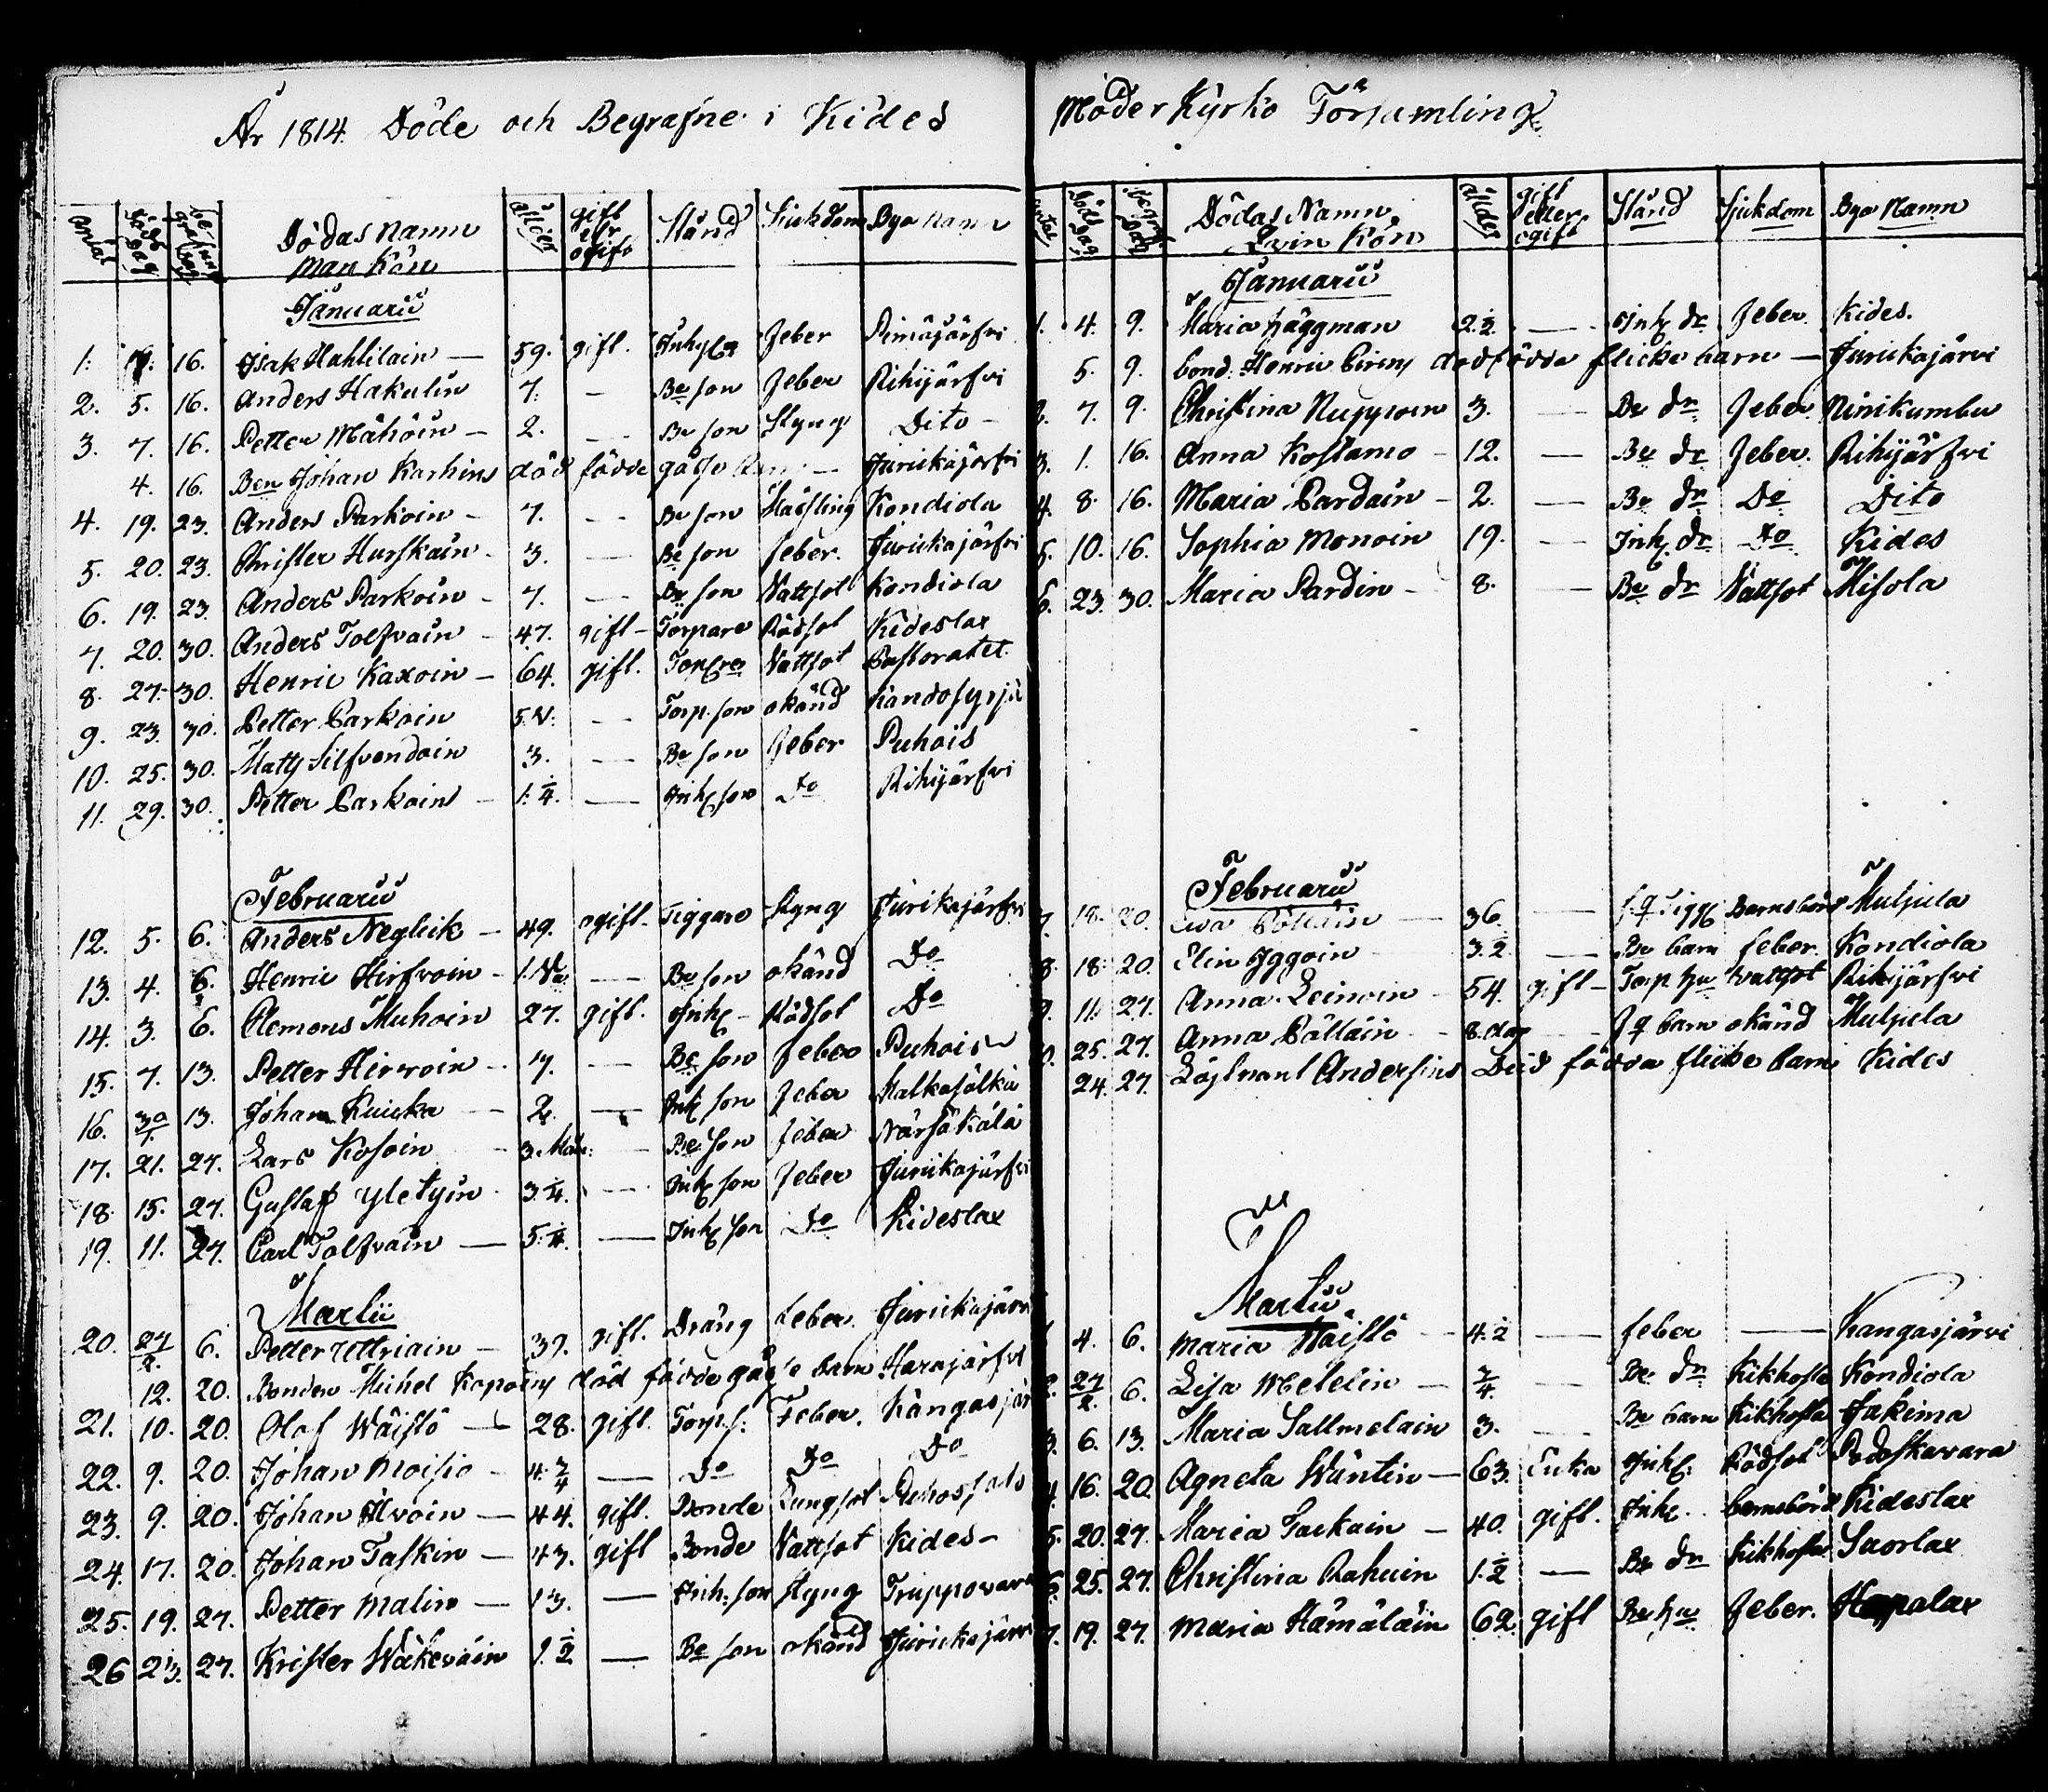 År 1814. Döde och Begrafne i Kides
antal Döds Dag Begrafnings dag Dödas Namn Man Kön ålder gift eller ogift Stånd Siukdom Bya namn
Januarii
1. 16. Isak Hahlilain — 59. gift. Inhys Feber
2. 5. 16. Anders Hakulin 7. — Be son Feber Rihijärfvi
3. 7. 16. Petter Mähöin — 2. — Be son Styng Dito —
4. 16. Ben Johan Karhins död födde Jurickajärfvi
4. 19. 23. Anders Parkoin — 7. — Be son Kondiola
5. 20. 23. Christer Hurskain — 3. — Be son feber. Jurickajärfvi
6. 19. 23. Anders Parkoin — 7. — Be son Vattsot Kondiola
7. 20. 30. Anders Tolfvain — 47. gift — Torpare Rödsot Kideslax
8. 27. 30. Henric Kaxoin — 64. gift. Vattsot Pastoratet
9. 23. 30. Petter Parkoin — Torp. son okänd
10. 25. 30. Matts Silfvendoin 3. — Be son Feber Puhois
11. 29. 30. Petter Parkoin — 1. 1/4. — Inh. son Do Rihijärfvi
Februarii
12. 5. 6. Anders Neglick — 49. ogift. Tiggare Styng Jurikajärfvi
13. 4. 6. Henric Hirfvoin — — Be son okänd Do
14. 3. 6. Clemens Muhoin 27. gift. Inh. — Rödsot Do
15. 7. 13. Petter Hirvoin — 7. — Be son Feber Puhois
16. 30/1. 13. Johan Kuicka — 2. — Inh. son Feber Halkasälkä
17. 21. 27. Lars Kosoin — 3. Mån: — Be son feber Närsäkälä
18. 15. 27. Gustaf Yletyin 3. 1/4. — Inh. son Feber Jurickajärfvi
19. 11. 27. Carl Tolfvain — 5. 1/4. — Inh. son Do Kideslax
Martii
20. 27/2. 6. Petter Uttriain — 39. gift. Dräng feber. Jurickajärvi
12. 20. Bonden Michel Kapoins död födde gåsse barn Harajärfvi
21. 10. 20. Olof Wäistö — 28. gift. Torp. s. Feber. Kangasjär
22. 9. 20. Johan Moisio — 4. 3/4 — Do Do Do
23. 9. 20. Johan Ilvoin — 44. gift. Bonde Lungsot
24. 17. 20. Johan Taskin — 43. gift Bonde Vattsot Kides —
25. 19. 27. Petter Malin — 13. — Inh. son Styng Truppovara
26 23. 27. Krister Wäkeväin 1. 1/2 — Be son okänd Jurickajärvi
Moder Kyrko Församling.
antal Döds Dag Begr. Dag Dödas Namn Qvin Kön ålder gift eller ogift Stånd Sjukdom Bya Namn
Januarii
1. 4. 9. Maria Häggman 2. 1/2. — Inh. dr Feber. Kides.
5. 9. bond: Henric Pirins dödfödda flicke barn — Jurickajärvi
2. 7. 9. Christina Nupponen 3. — Be dr Feber. Niinikumbu
3. 1. 16. Anna Kostamo — 12. — Be dr Feber. Rihijärfvi
4. 8. 16. Maria Pardain — 2. — Be dr Do Dito
5. 10. 16. Sophia Monoin 19. — Inh. dr Do Kides
6. 23. 30. Maria Pardin — 8. — Be dr Vattsot Misola
Februarii
7. 18. 20. Eva Pölläin — 36. — Barnsbörd Muljula
8. 18. 20. Elin Iggoin — — Be barn feber. Kondiola
9. 11. 27. Anna Leinoin — 54. gift — Torp hu Vattsot Rihijärfvi
10. 25. 27. Anna Pölläin — 8. dag — barn okänd Muljula
24. 27. Löjtnant Andersins Död födda flicke barn Kides
Martii
1. 4. 6. Maria Wäistö — 4. 1/2 — feber — Kangasjärvi
2. 27/2. 6. Lisa Metelin — 3/4. — Be dr Kikhosta Kondiola
3. 6. 13. Maria Sallmelain 3. — Be barn Kikhosta Jakima
4. 16. 20. Agneta Wäntin — 63. Enka Inh. Rödsot Podoskavara
5. 20. 27. Maria Taskain — 40. gift. Inh. barnsbörd Kideslax
6. 25. 27. Christina Rahuin 1. 1/2 — Be dr Kikhosta Suorlax
7. 19. 27. Maria Hämäläin 62. gift Be hu Feber. Hapalax